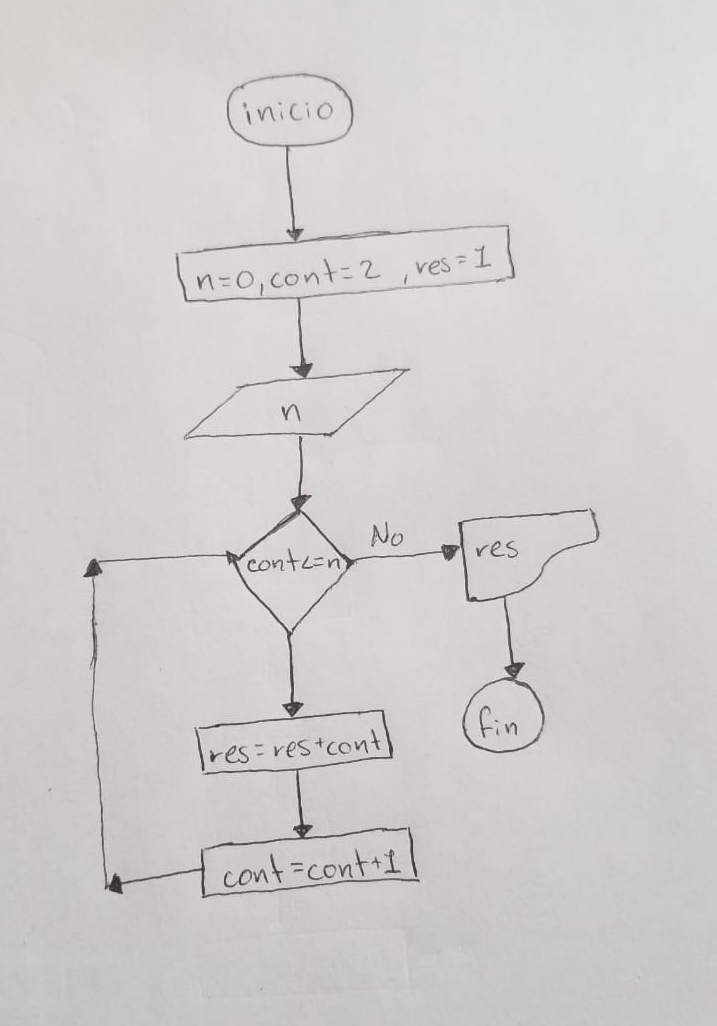 inicio
n=0,cont=2 ,res=1
n
cont<=n
No
res
res=res+cont
fin
cont=cont+1